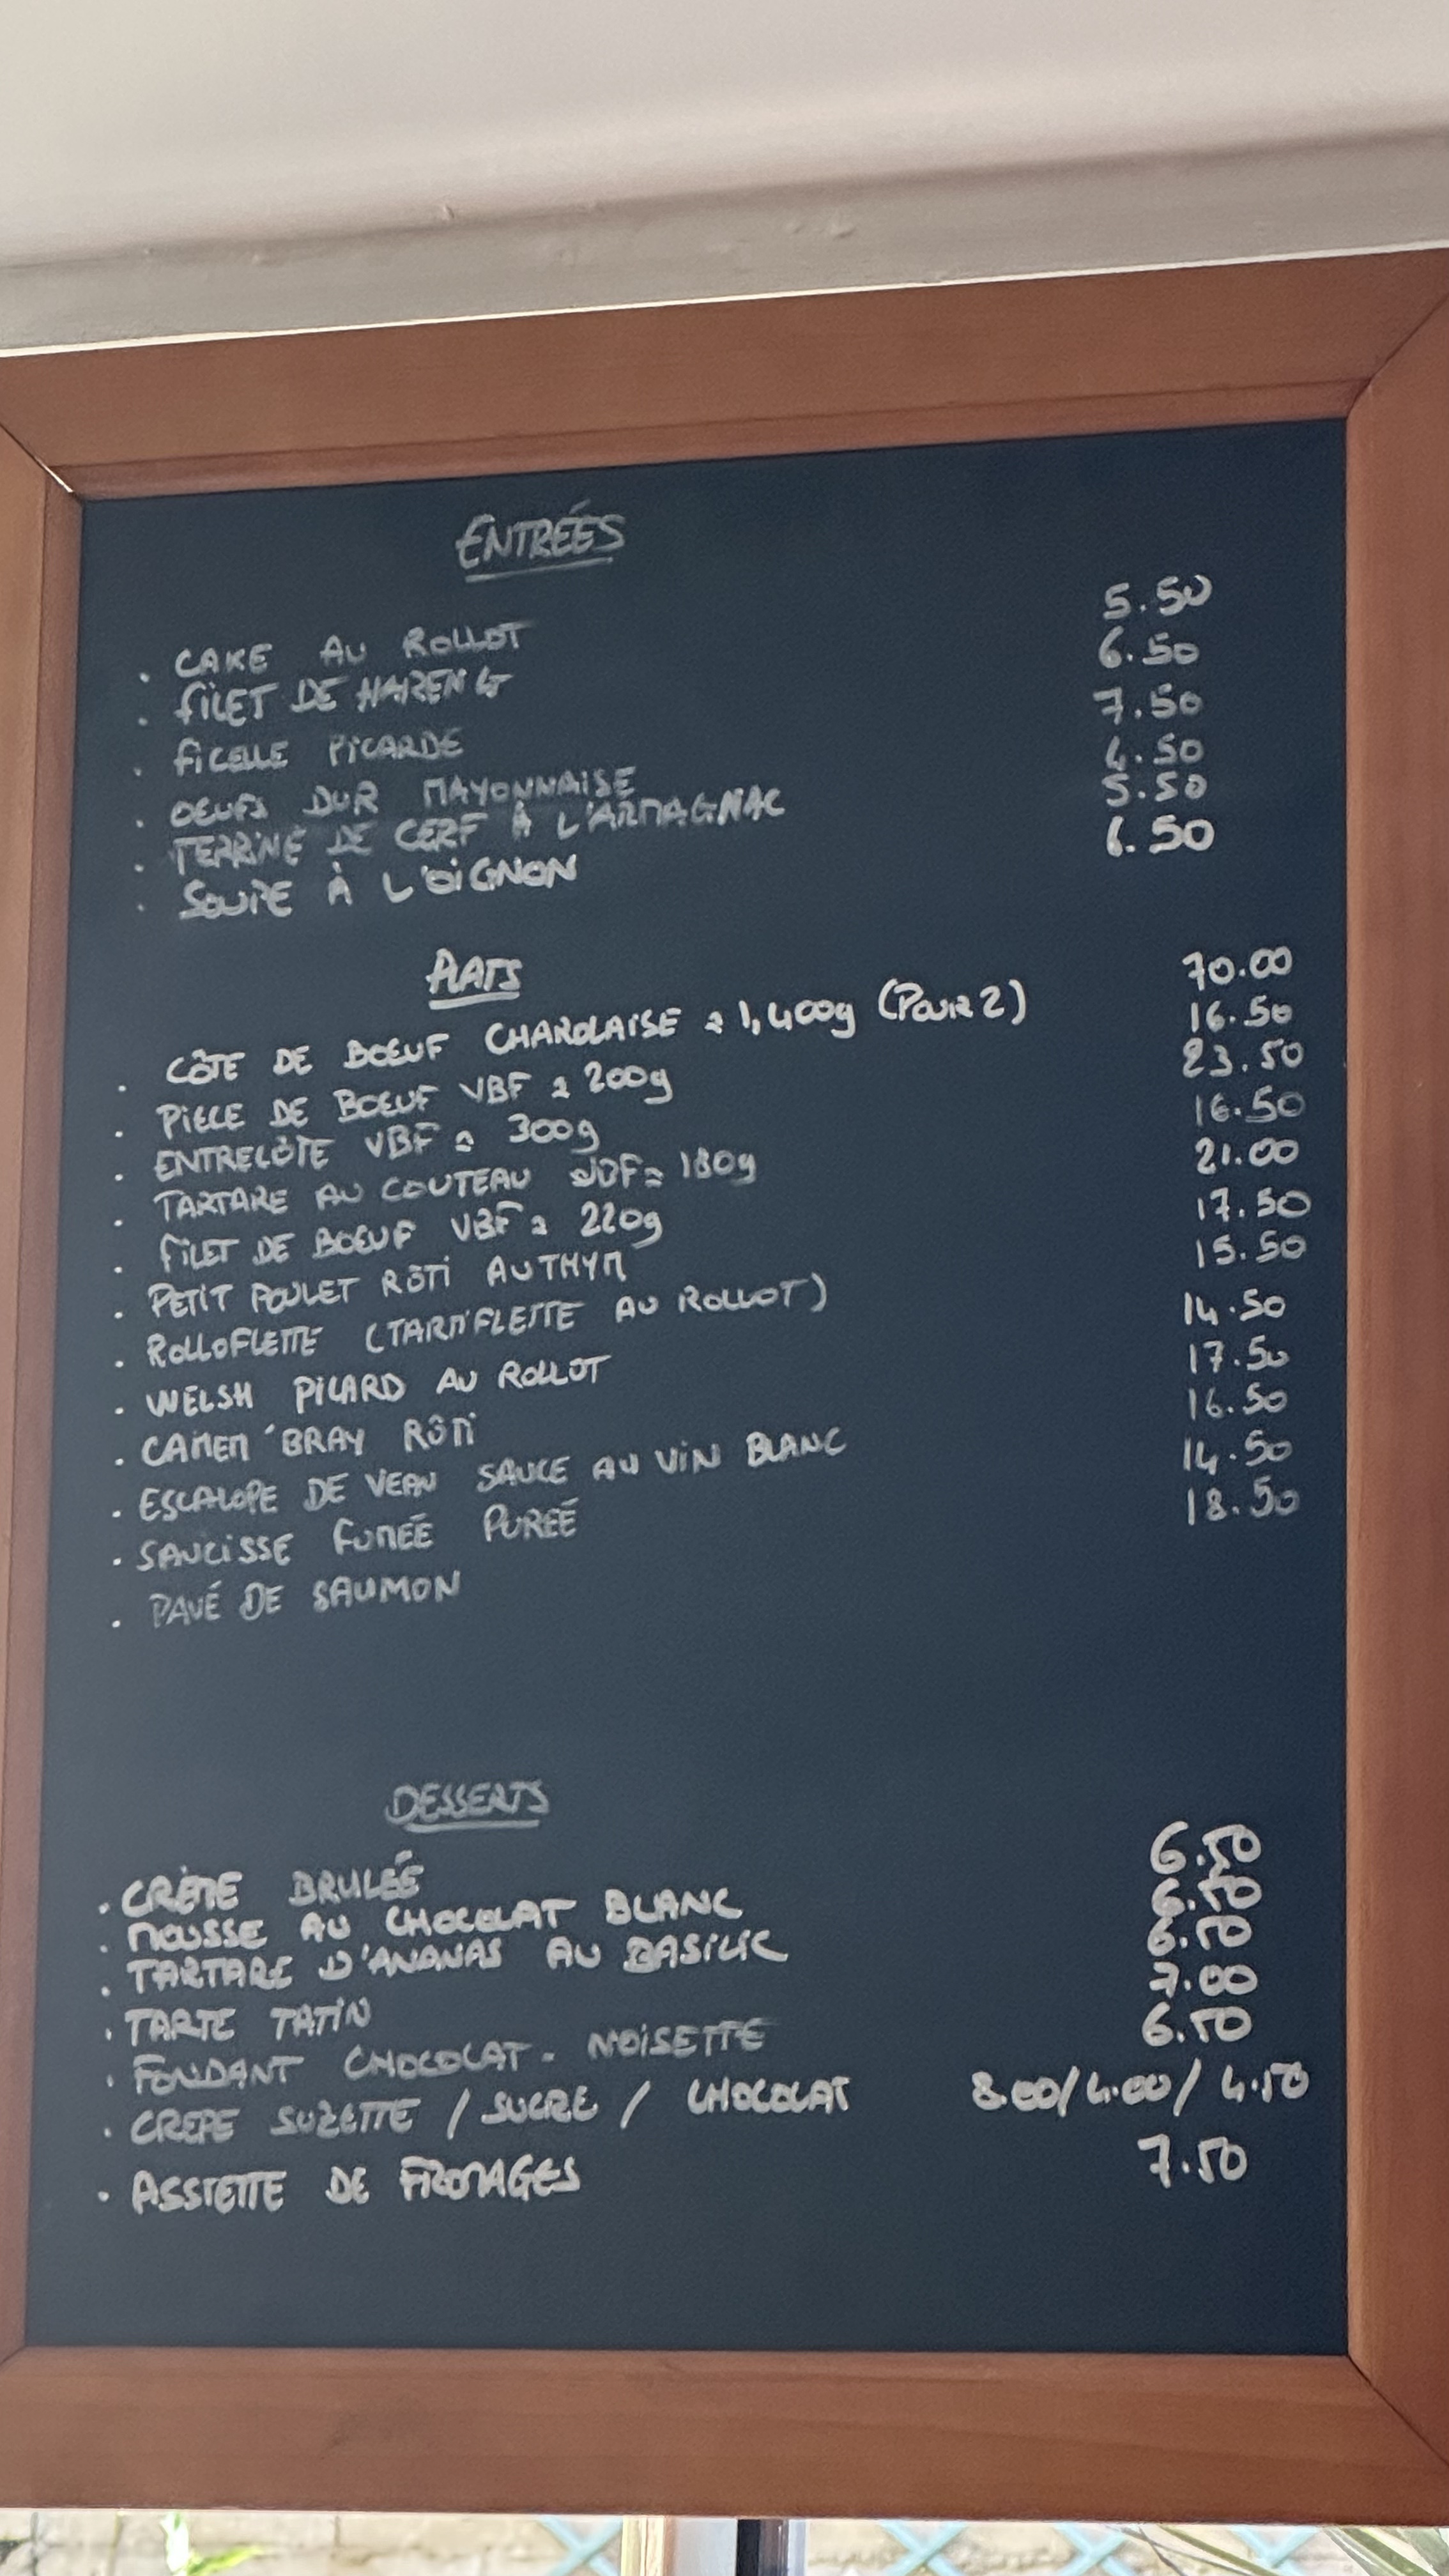 ENTRÉES
. CAKE AU ROLLOT 5.50
. FILET DE HARENG 6.50
. FICELLE PICARDE 7.50
. OEUFS DUR MAYONNAISE 4.50
. TERRINE DE CERF À L'ARMAGNAC 5.50
. SOUPE À L'OIGNON 6.50
PLATS
. CÔTE DE BOEUF CHAROLAISE ± 1,400g (POUR 2) 70.00
. PIECE DE BOEUF VBF ± 200g 16.50
. ENTRECÔTE VBF ± 300g 23.50
. TARTARE AU COUTEAU VBF ± 180g 16.50
. FILET DE BOEUF VBF ± 220g 21.00
. PETIT POULET RÔTI AU THYM 17.50
. ROLLOFLETTE (TARTIFLETTE AU ROLLOT) 15.50
. WELSH PICARD AU ROLLOT 14.50
. CAMEM'BRAY RÔTI 17.50
. ESCALOPE DE VEAU SAUCE AU VIN BLANC 16.50
. SAUCISSE FUMÉE PURÉE 14.50
. PAVÉ DE SAUMON 18.50
DESSERTS
. CRÈME BRULÉE 6.50
. MOUSSE AU CHOCOLAT BLANC 6.50
. TARTARE D'ANANAS AU BASILIC 6.50
. TARTE TATIN 7.00
. FONDANT CHOCOLAT - NOISETTE 6.50
. CREPE SUZETTE / SUCRE / CHOCOLAT 8.00/4.00/4.50
. ASSIETTE DE FROMAGES 7.50